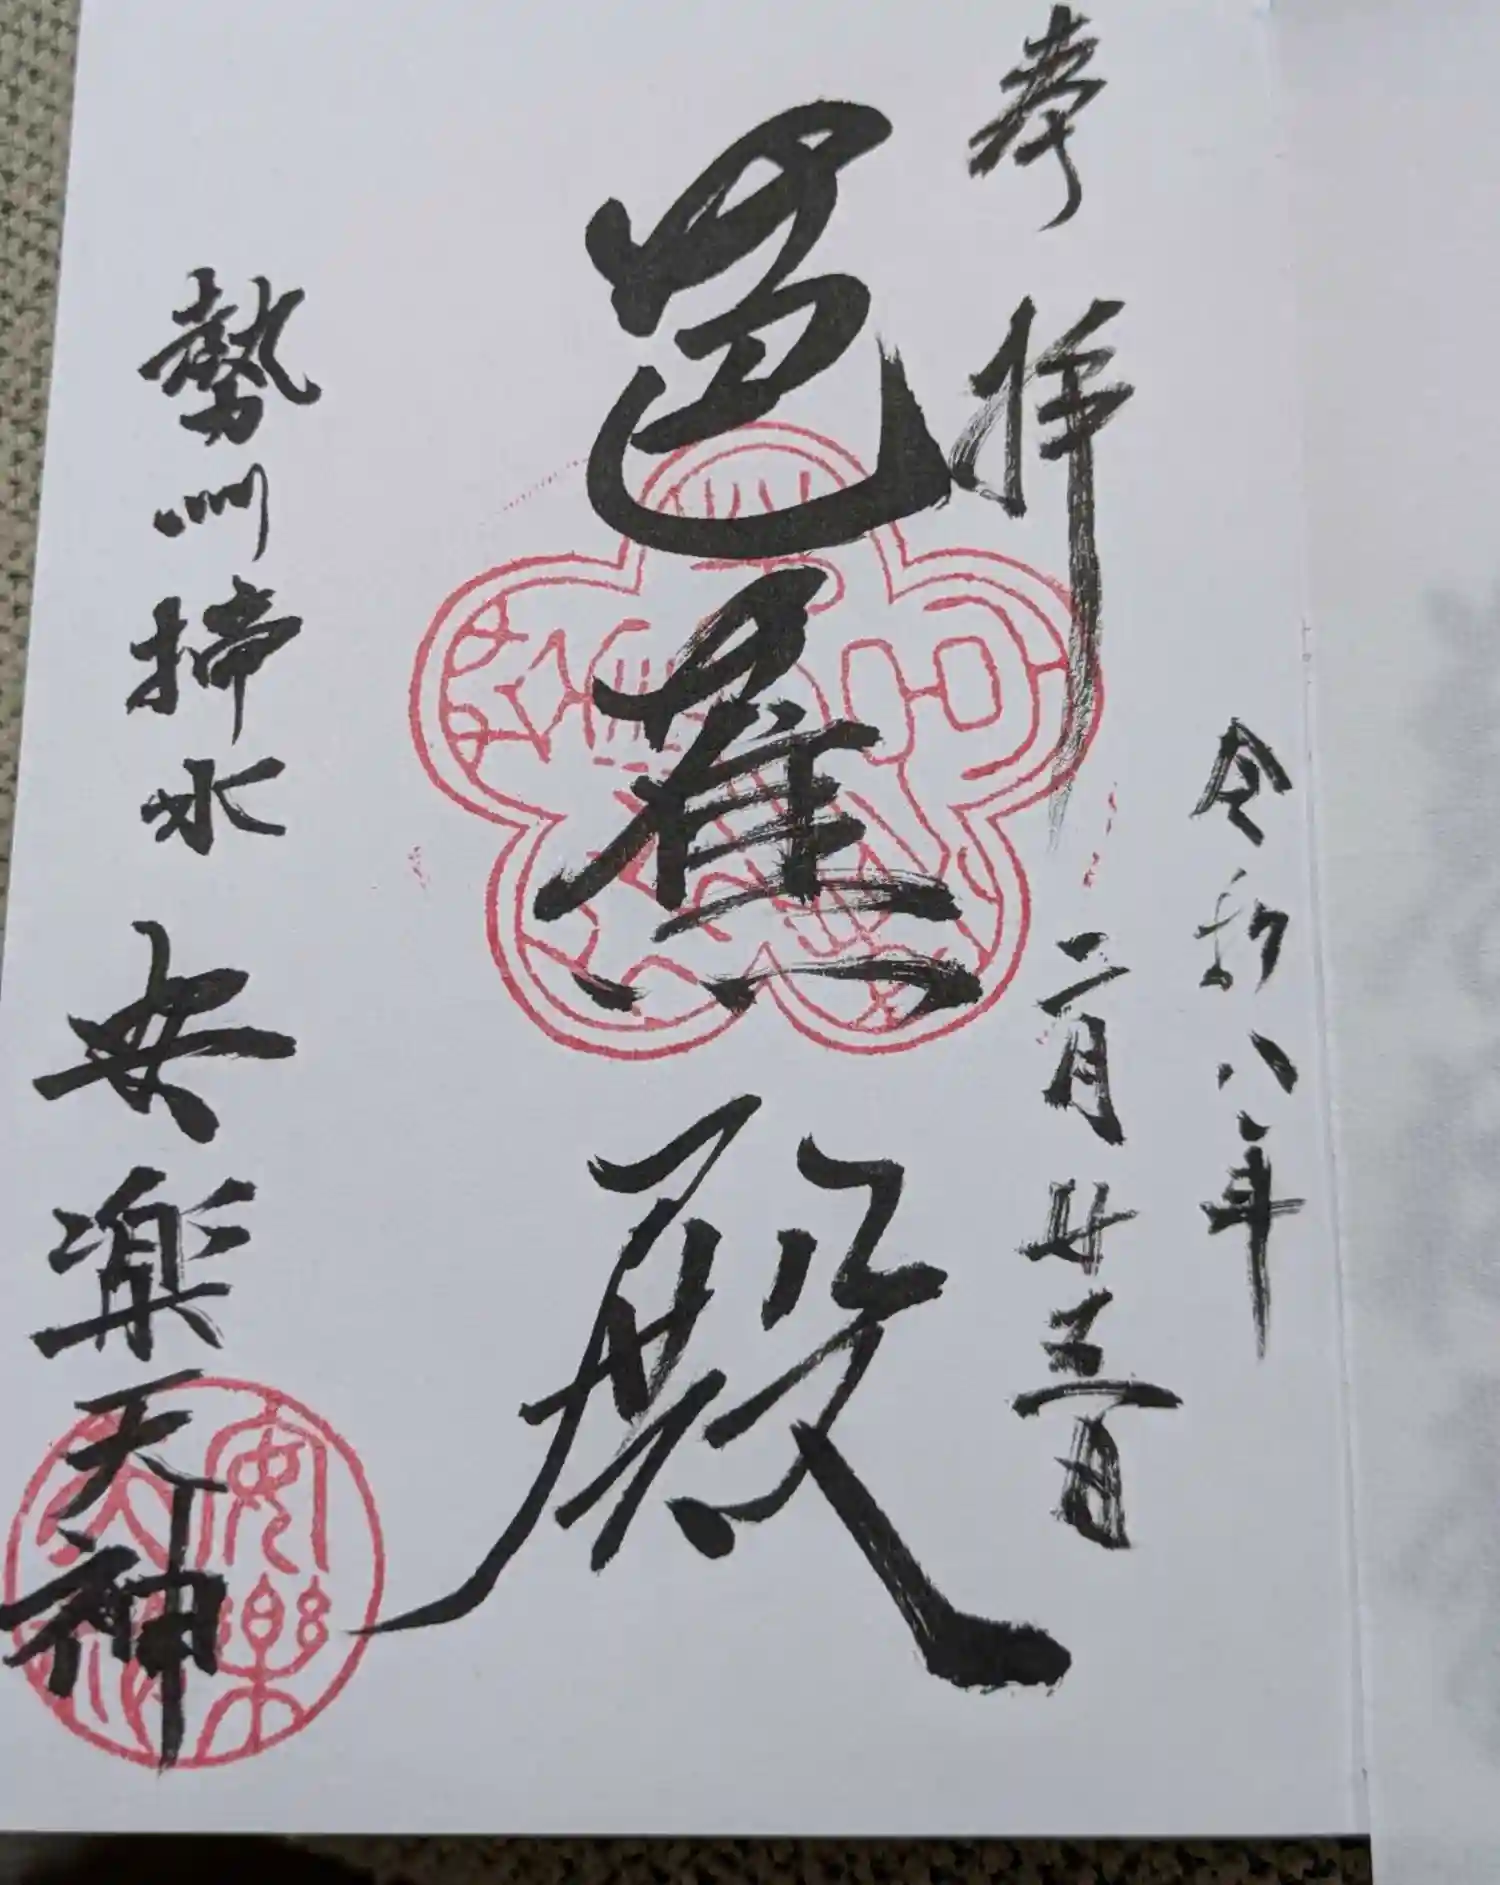 奉拝
令和八年
二月廿三日
芭蕉殿
勢州掃水 安楽天神
安樂